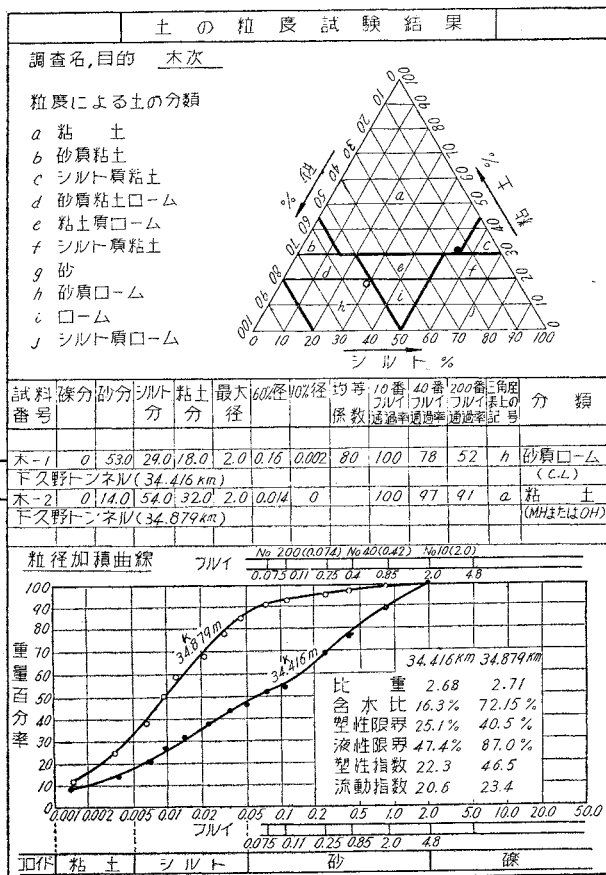 土の粒度試験結果
調査名,目的 木次
粒度による土の分類
a 粘土
b 砂質粘土
c シルト質粘土
d 砂質粘土ローム
e 粘土質ローム
f シルト質粘土
g 砂
h 砂質ローム
i ローム
j シルト質ローム
砂 %
粘土 %
a
b c
d e f
h i j
0 10 20 30 40 50 60 70 80 90 100
シルト %
試料番号 礫分 砂分 シルト分 粘土分 最大径 60%径 10%径 均等係数 10番フルイ通過率 40番フルイ通過率 200番フルイ通過率 三角座表上の記号 分類
木-1 0 53.0 29.0 18.0 2.0 0.16 0.002 80 100 78 52 h 砂質ローム
下久野トンネル(34.416km) (C.L)
木-2 0 14.0 54.0 32.0 2.0 0.014 0 100 97 91 a 粘土
下久野トンネル(34.879km) (MHまたはOH)
粒径加積曲線
フルイ No 200(0.074) No 40(0.42) No10(2.0)
0.075 0.11 0.25 0.4 0.85 2.0 4.8
重量百分率
100
90
80
70
60
50
40
30
20
10
0
34.879Km
34.416Km
34.416Km 34.879Km
比重 2.68 2.71
含水比 16.3% 72.15%
塑性限界 25.1% 40.5%
液性限界 47.4% 87.0%
塑性指数 22.3 46.5
流動指数 20.6 23.4
0.001 0.002 0.005 0.01 0.02 0.05 0.1 0.2 0.5 1.0 2.0 5.0 10.0 20.0 50.0
フルイ
0.075 0.11 0.25 0.85 2.0 4.8
コロイド 粘土 シルト 砂 礫